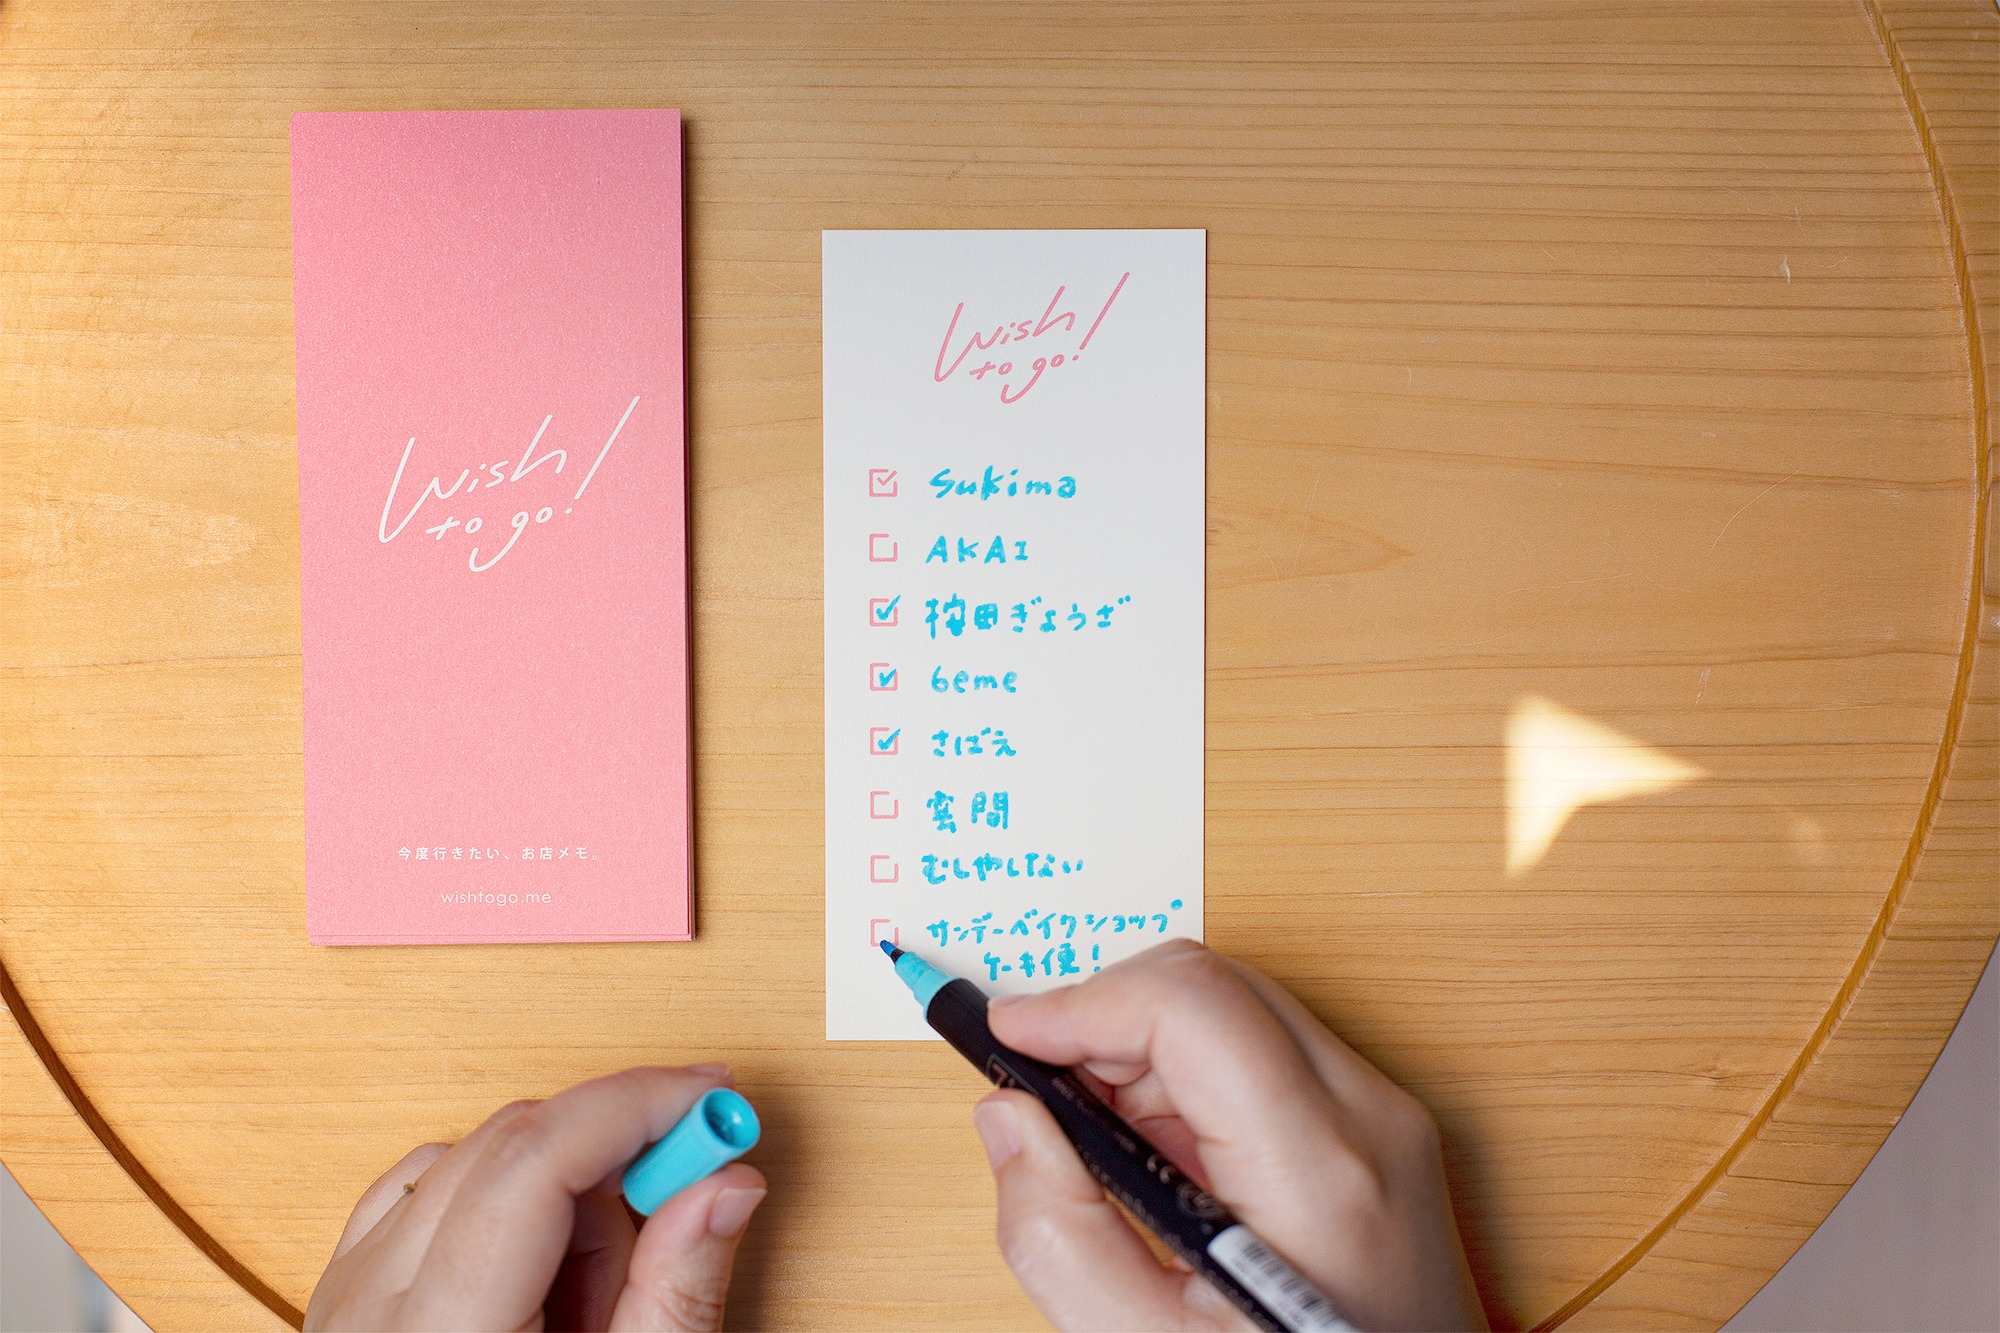 Wish
to go!
今度行きたい、お店メモ。
wishtogo.me
Wish
to go!
Sukima
AKAI
按田ぎょうざ
6eme
さばえ
雲間
むしやしない
サンデーベイクショップ
ケーキ便!